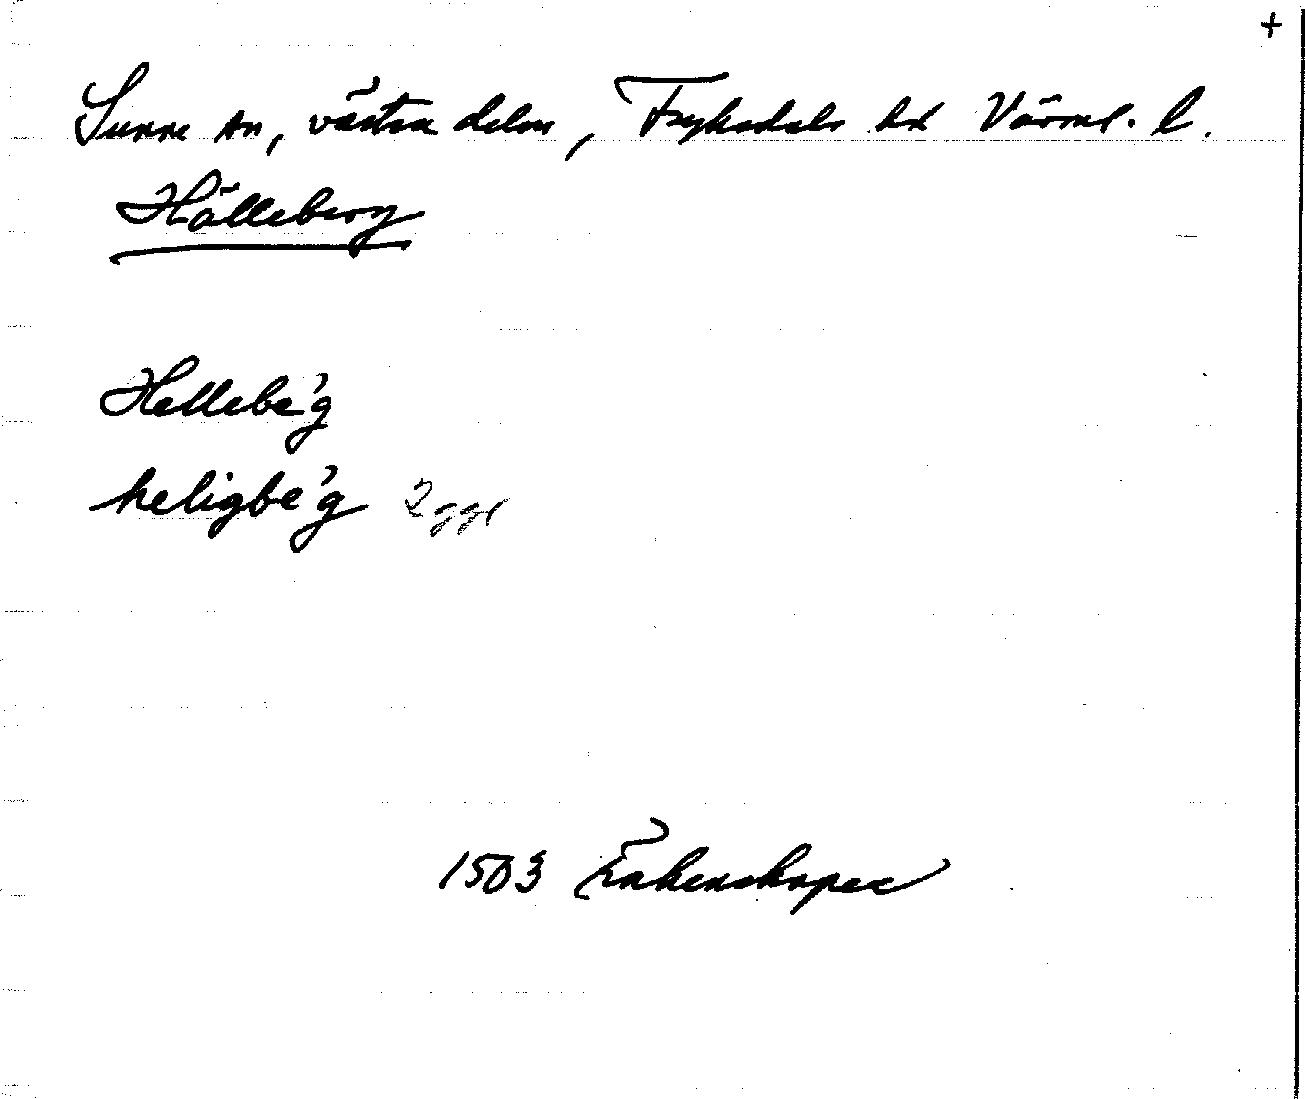 +
Sunne sn, västra delen, Fryksdals hd Värml. l.
Hälleberg
Hellebe'g
heligbe'g 2 ggr
1503 Räkenskaper